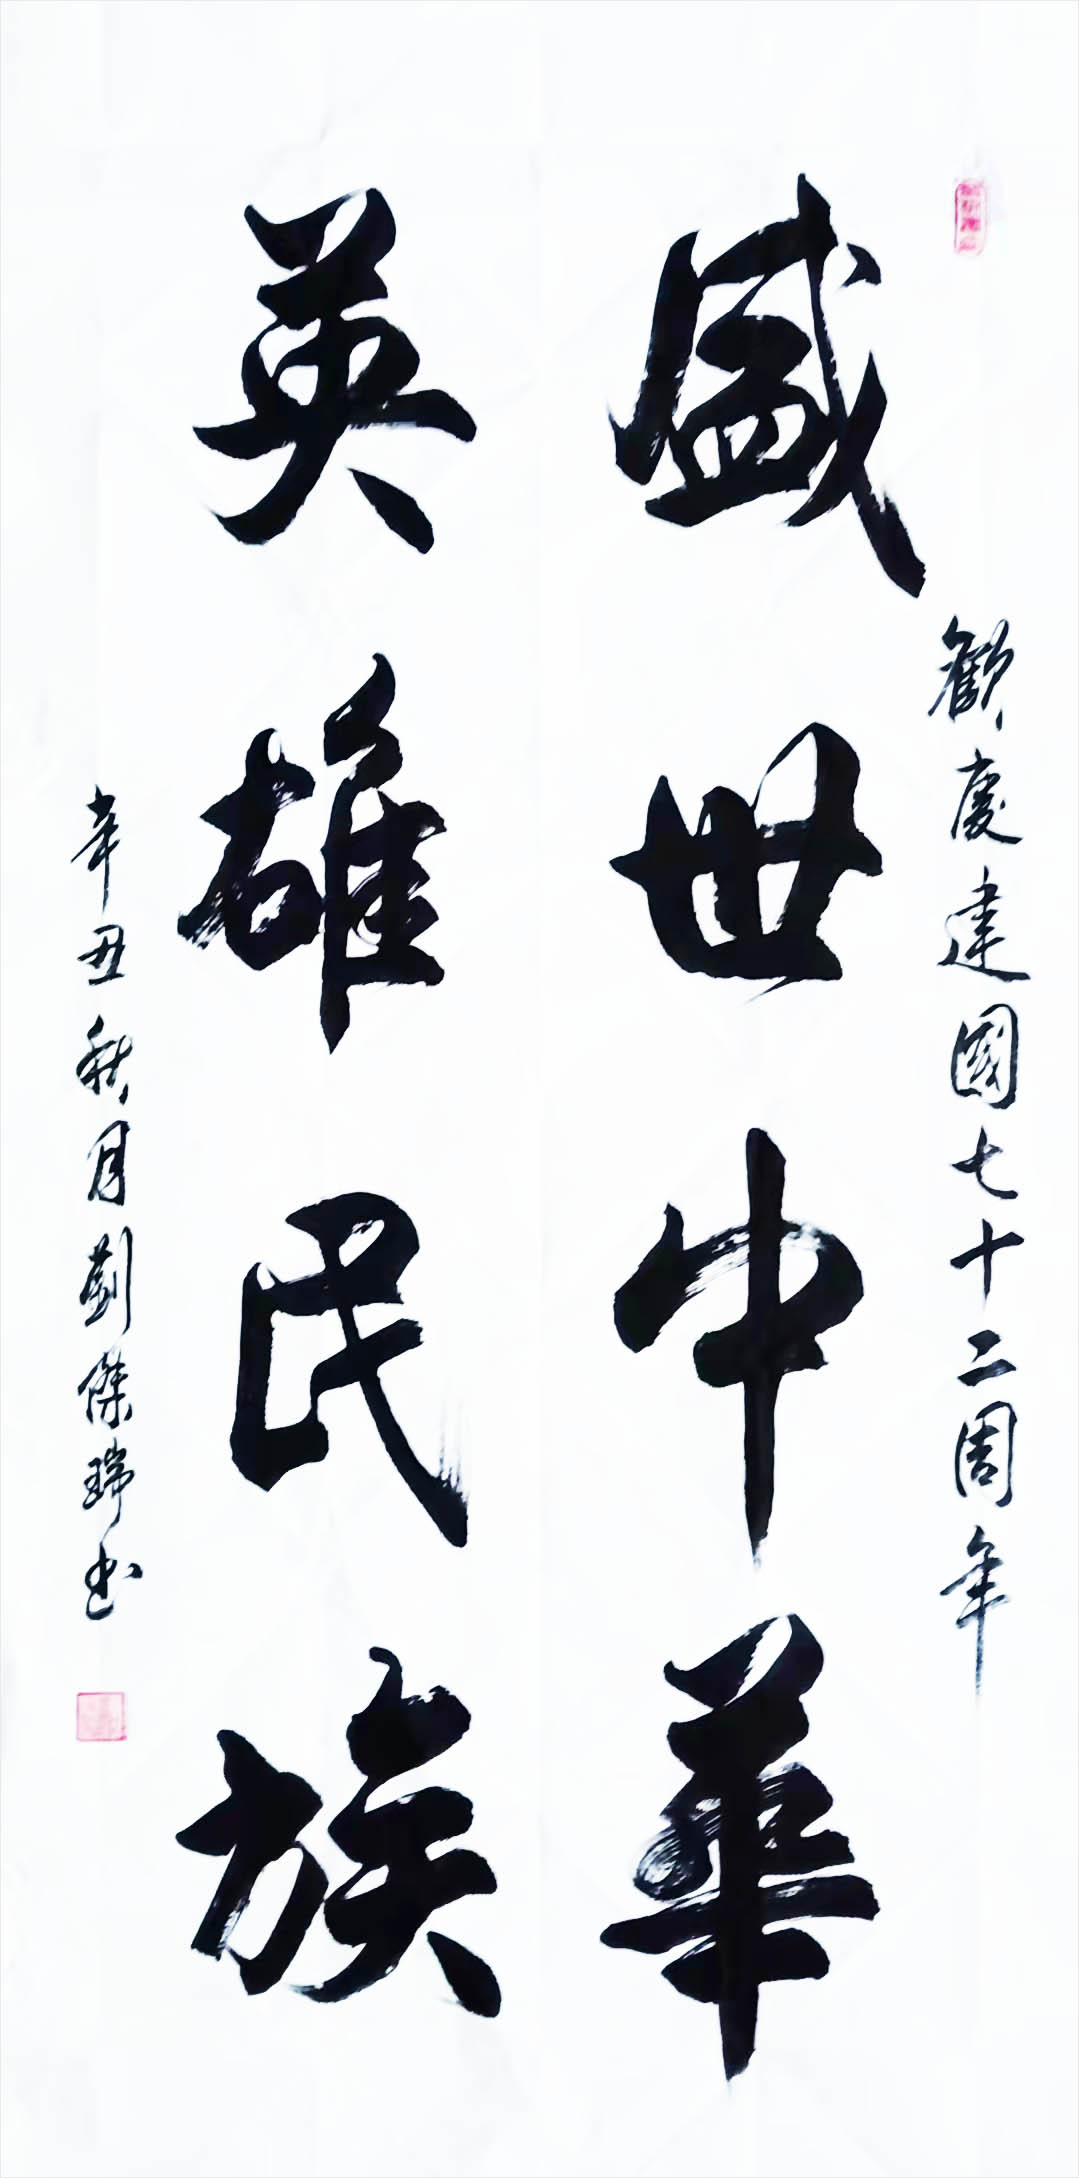 歡慶建國七十二周年
盛世中華
英雄民族
辛丑秋月劉傑瑞书